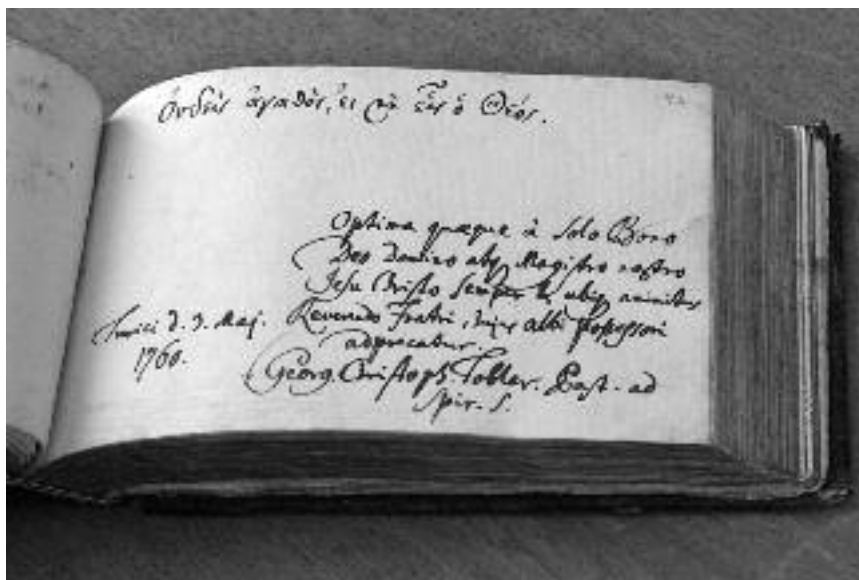 Ὀυδεὶς ἀγαθὸς, ἐι μὴ εἷς ὁ Θεός.
Optima quæque à Solo Bono
Deo Domino atq Magistro nostro
Jesu Christo semper & ubiq animitus
Reverendo Fratri, hujus albi possessori
adprecatur.
Turici d. 3. Maj.
1760.
Georg. Christoph. Tobler. Past. ad
Spir. S.